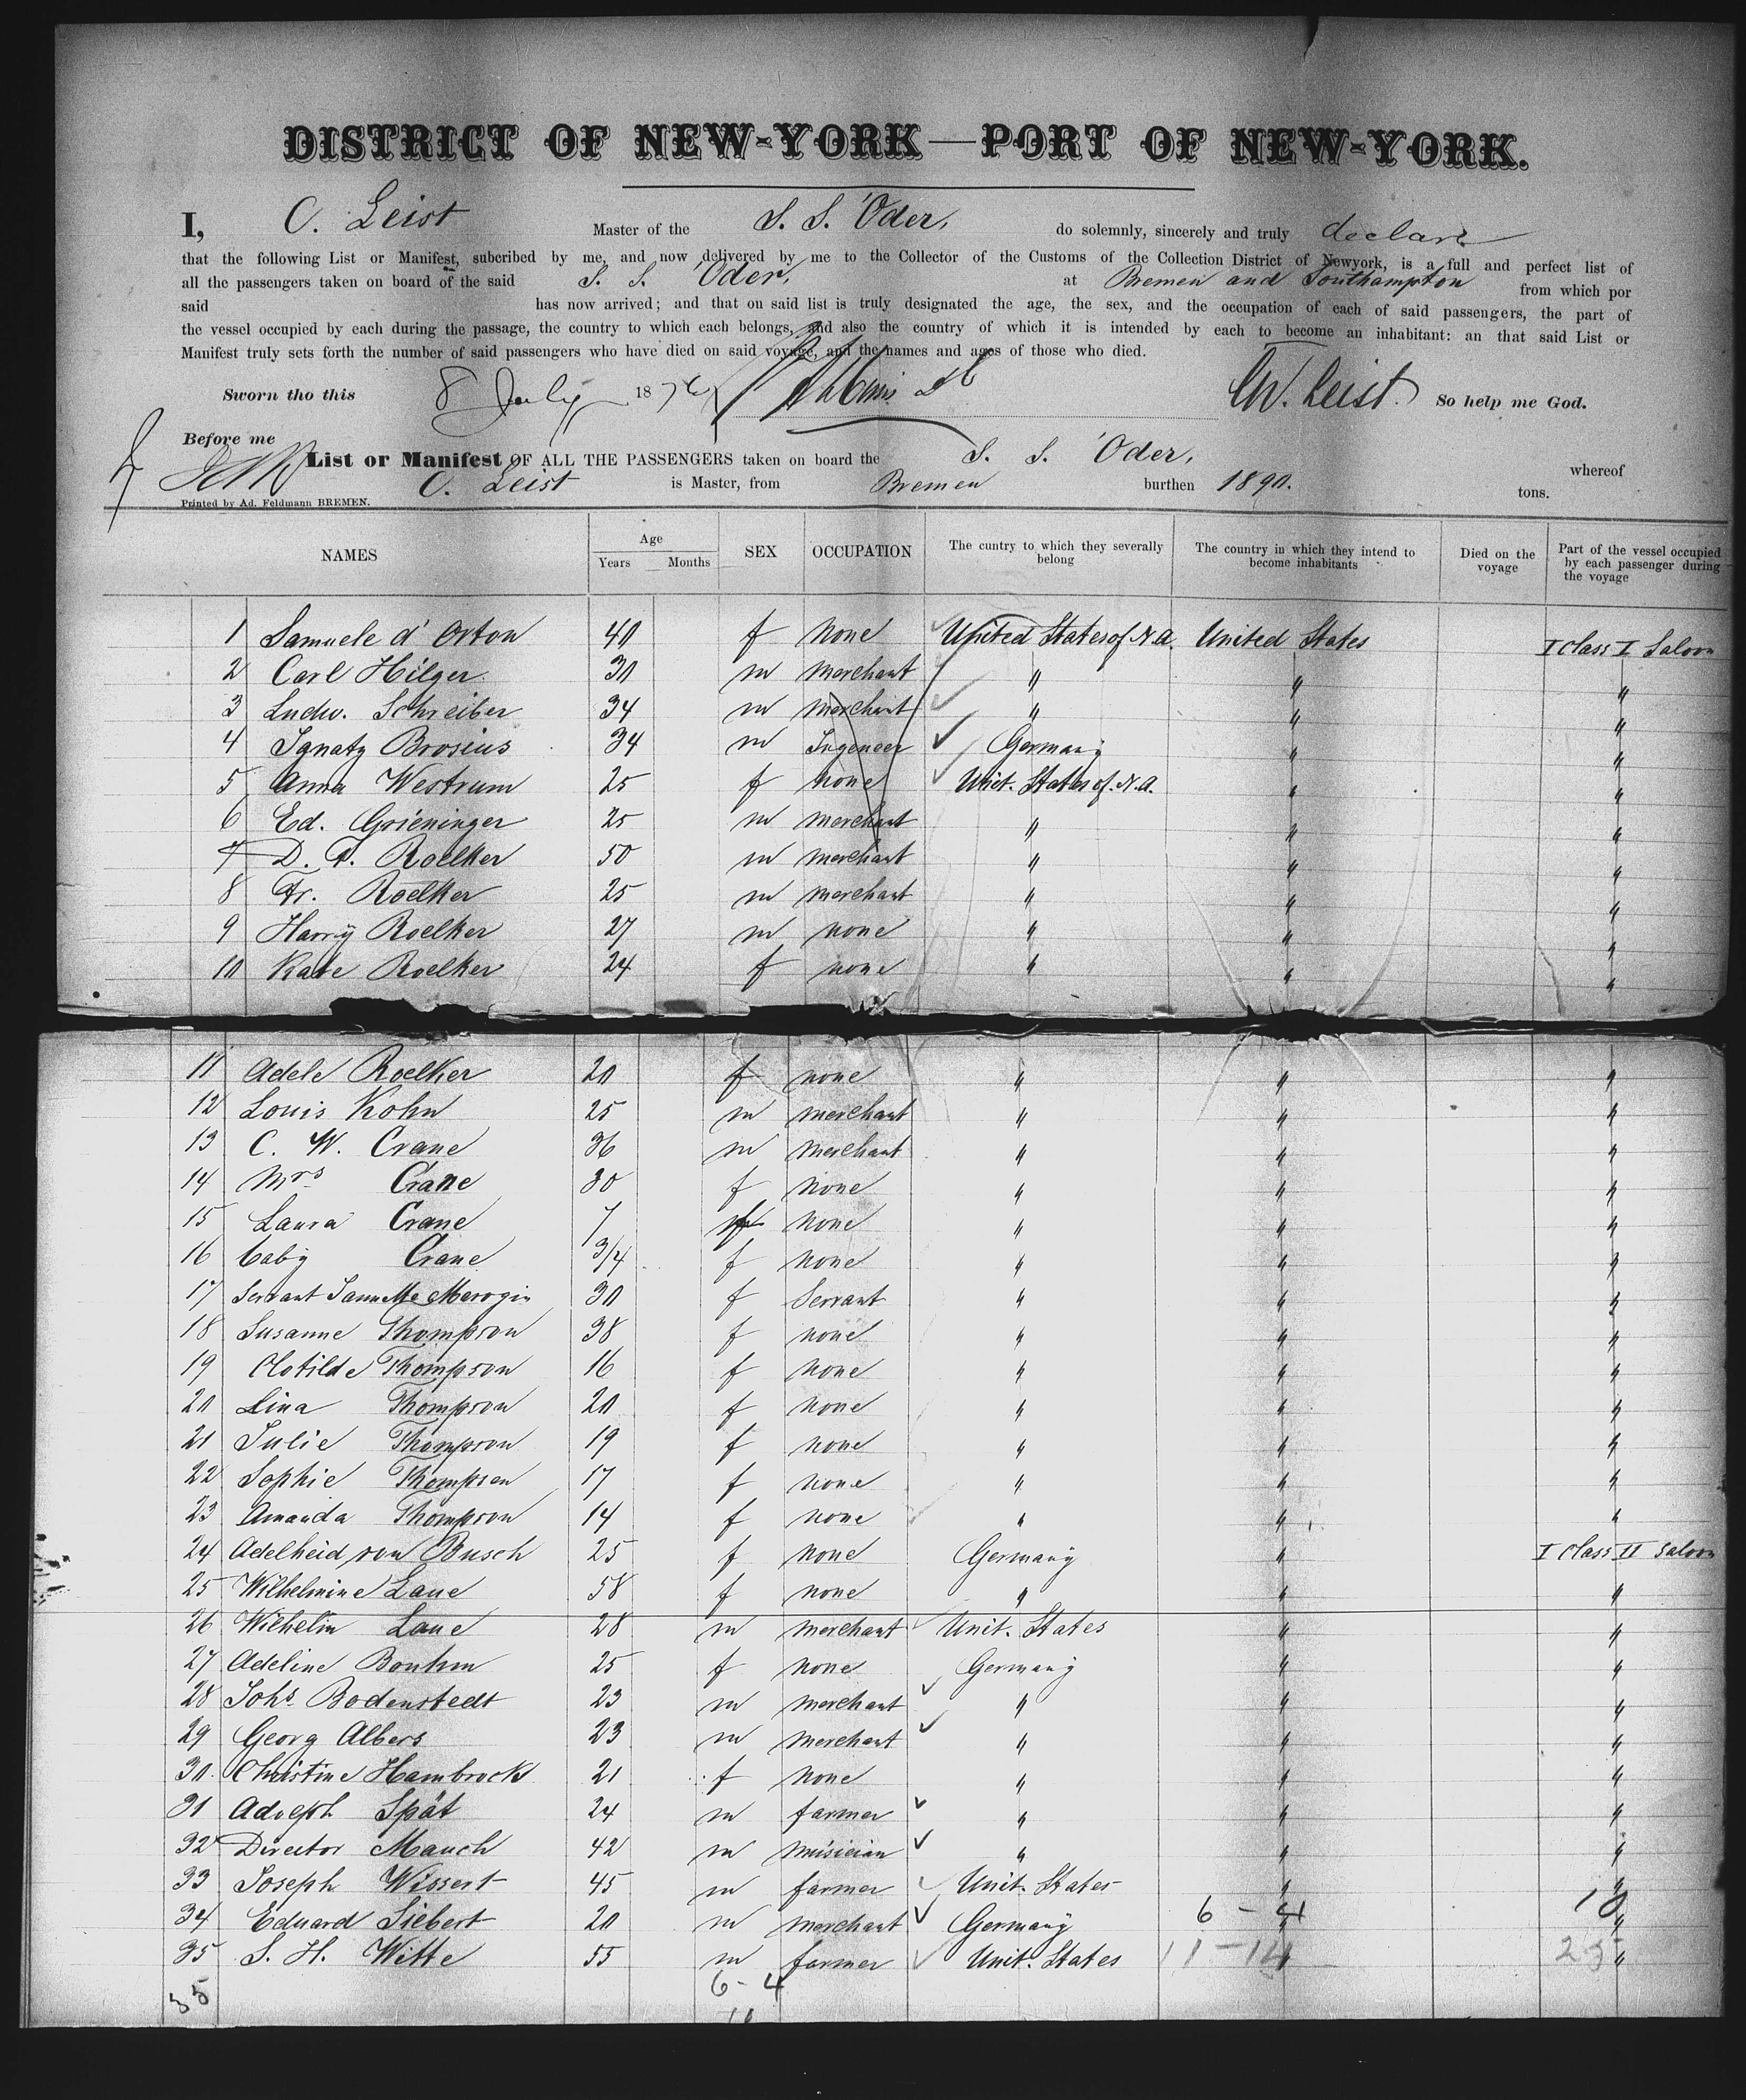 DISTRICT OF NEW-YORK—PORT OF NEW-YORK.
I, C. Leist Master of the S. S. Oder, do solemnly, sincerely and truly declare
that the following List or Manifest, subcribed by me, and now delivered by me to the Collector of the Customs of the Collection District of Newyork, is a full and perfect list of
all the passengers taken on board of the said S. S. Oder, at Bremen and Southampton from which por
said has now arrived; and that on said list is truly designated the age, the sex, and the occupation of each of said passengers, the part of
the vessel occupied by each during the passage, the country to which each belongs, and also the country of which it is intended by each to become an inhabitant: an that said List or
Manifest truly sets forth the number of said passengers who have died on said voyage, and the names and ages of those who died.
Sworn tho this 8 July 187 C. W. Leist. So help me God.
Before me
List or Manifest OF ALL THE PASSENGERS taken on board the S. S. Oder, whereof
C. Leist is Master, from Bremen burthen 1890. tons.
Printed by Ad. Feldmann BREMEN.
NAMES Age Years Months SEX OCCUPATION The cuntry to which they severally belong The country in which they intend to become inhabitants Died on the voyage Part of the vessel occupied by each passenger during the voyage
1 Samuele d' Orton 40 f none United States of N.A. United States I class I Saloon
2 Carl Hilger 30 m merchant " " "
3 Ludw. Schreiber 34 m merchant " " "
4 Ignatz Brosius 34 m Ingeneer Germany " "
5 Anna Westrum 25 f none Unit. States of N.A. " "
6 Ed. Grieninger 25 m merchant " " "
7 D. F. Roelker 50 m merchant " " "
8 Fr. Roelker 25 m merchant " " "
9 Harry Roelker 27 m none " " "
10 Kate Roelker 24 f none " " "
11 Adele Roelker 20 f none " " "
12 Louis Kohn 25 m merchant " " "
13 C. W. Crane 36 m merchant " " "
14 Mrs Crane 30 f none " " "
15 Laura Crane 7 f none " " "
16 baby Crane 3/4 f none " " "
17 Servant Jannette 30 f Servant " " "
18 Susanne Thompson 38 f none " " "
19 Clotilde Thompson 16 f none " " "
20 Lina Thompson 20 f none " " "
21 Julie Thompson 19 f none " " "
22 Sophie Thompson 17 f none " " "
23 Amanda Thompson 14 f none " " "
24 Adelheid von Busch 25 f none Germany " I class II saloon
25 Wilhelmine Laue 58 f none " " "
26 Wilhelm Laue 28 m merchant Unit. States " "
27 Adeline 25 f none Germany " "
28 Johs Bodenstedt 23 m merchant " " "
29 Georg Albers 23 m merchant " " "
30 Christine Hambrock 21 f none " " "
31 Adolph Spät 24 m farmer " " "
32 Director Mauch 42 m musician " " "
33 Joseph Wissert 45 m farmer Unit. States " "
34 Eduard Siebert 20 m merchant Germany 6 - 4 " 10 "
35 S. H. Witte 55 m farmer Unit. States 11-14 " 25 "
35 6-4